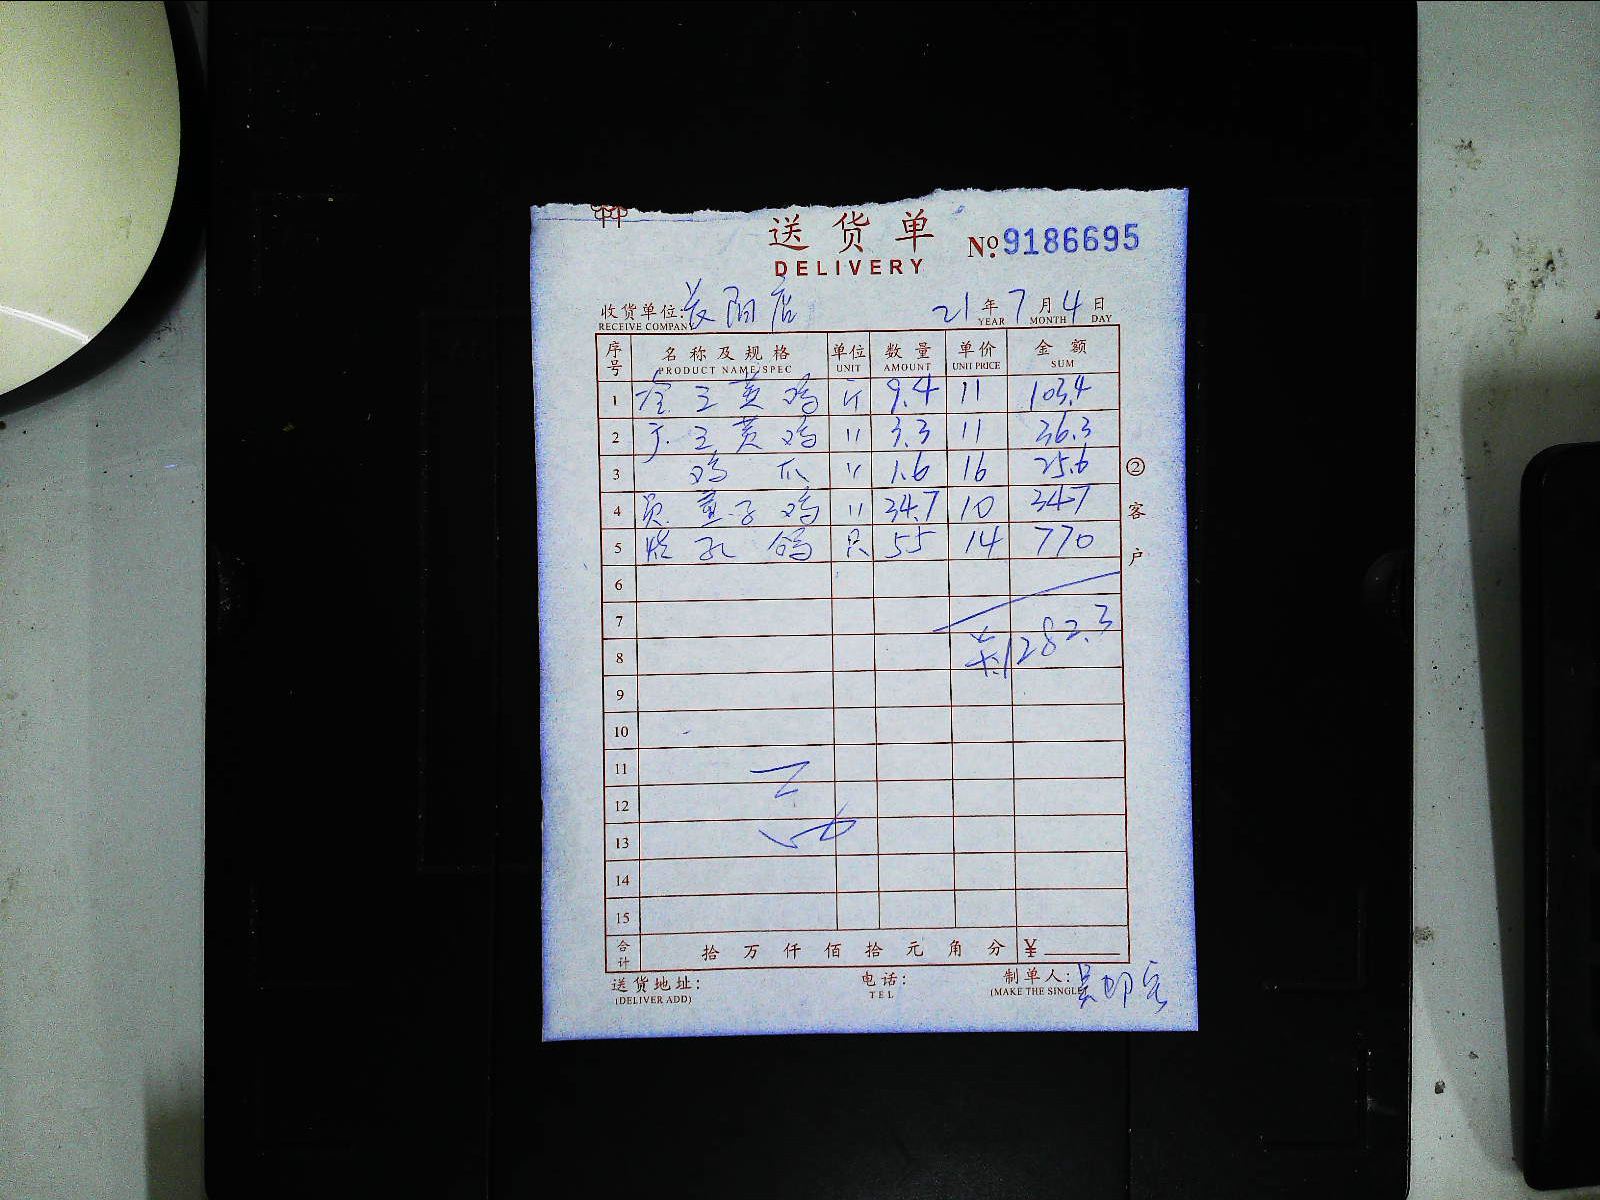 送货单
DELIVERY
No. 9186695
收货单位: 长阳店 21年7月4日
RECEIVE COMPANY YEAR MONTH DAY
序号 名称及规格 单位 数量 单价 金额
PRODUCT NAME/SPEC UNIT AMOUNT UNIT PRICE SUM
1 三黄鸡 斤 9.4 11 103.4
2 三黄鸡 〃 3.3 11 36.3
3 鸡爪 〃 1.6 16 25.6
4 童子鸡 〃 34.7 10 347
5 乳鸽 只 55 14 770
6
7
8 1282.3
9
10
11
12
13
14
15
合计 拾万仟佰拾元角分 ¥
②客户
送货地址: 电话: 制单人:
(DELIVER ADD) TEL (MAKE THE SINGLE)